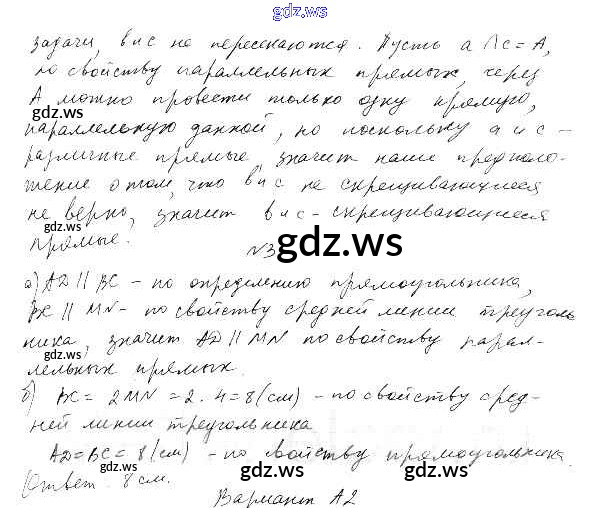 gdz.ws
задачи, b и c не пересекаются. Пусть a ∩ c = A,
по свойству параллельных прямых, через
A можно провести только одну прямую,
gdz.ws gdz.ws
параллельную данной, но поскольку a и c –
различные прямые, значит наше предполо-
жение о том, что b и c не скрещивающиеся
не верно, значит b и c – скрещивающиеся
прямые.
N3
gdz.ws
а) AD || BC – по определению прямоугольника,
BC || MN – по свойству средней линии треуголь
ника, значит AD || MN по свойству парал-
gdz.ws gdz.ws
лельных прямых.
б) BC = 2MN = 2 · 4 = 8 (см) – по свойству сред-
ней линии треугольника
AD = BC = 8 (см) – по свойству прямоугольника.
gdz.ws gdz.ws
Ответ: 8 см.
Вариант А2
gdz.ws